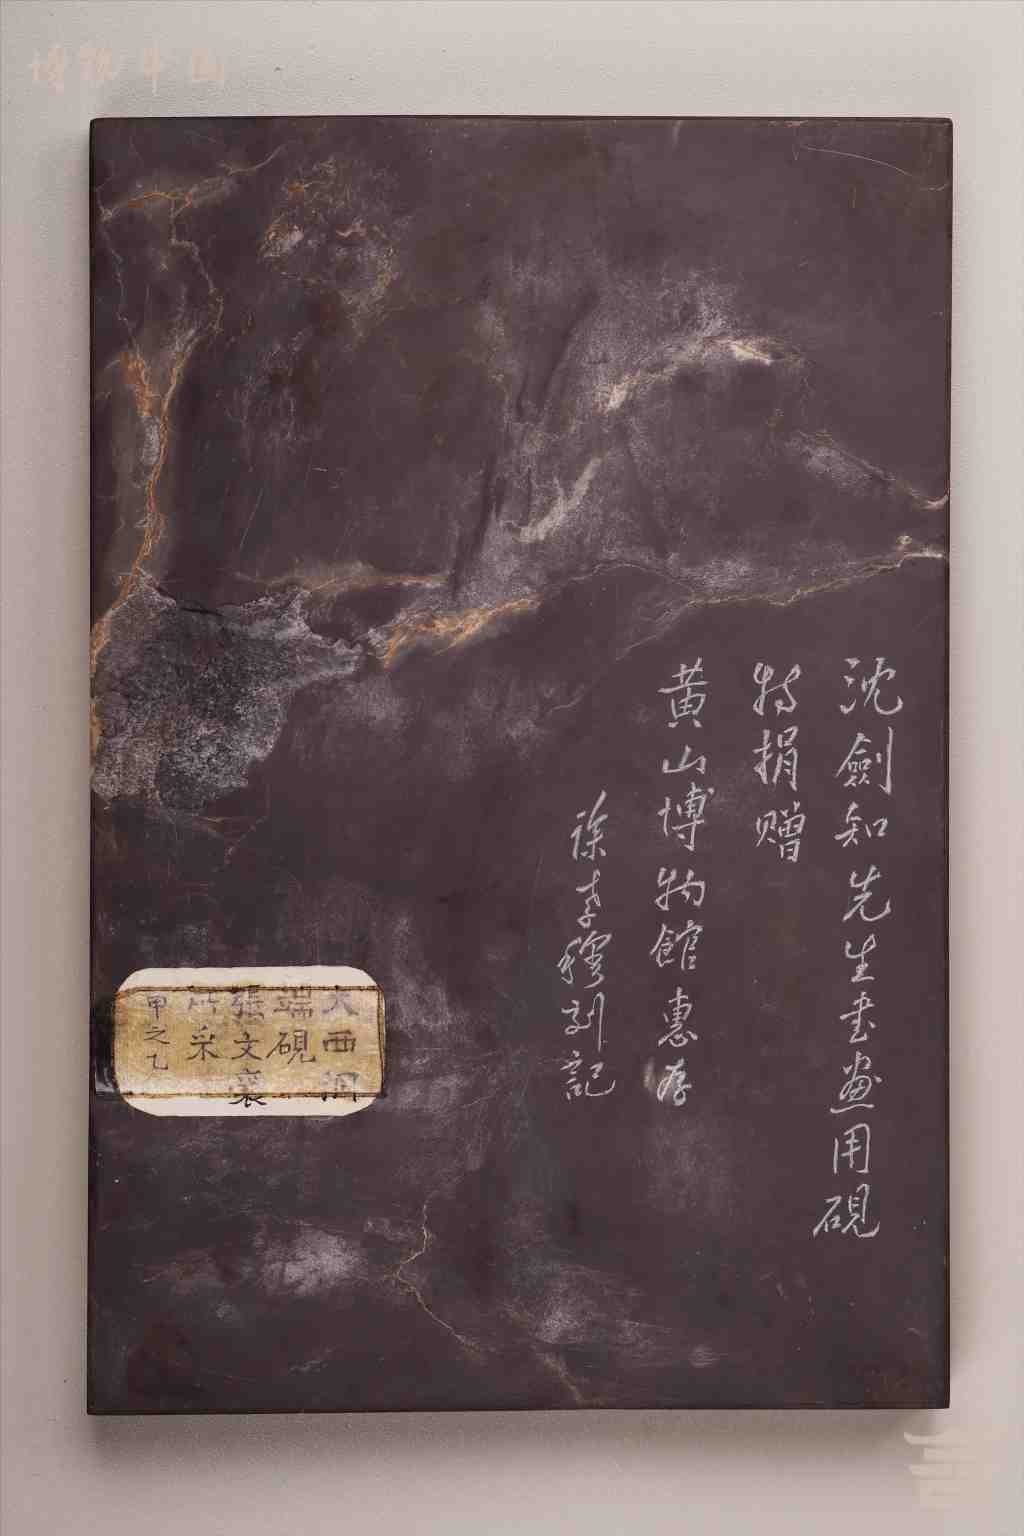 博观中国
沈劍知先生书画用硯
特捐赠
黄山博物館惠存
徐孝穆刻記
大西洞
端硯
張文襄
所采
甲之乙